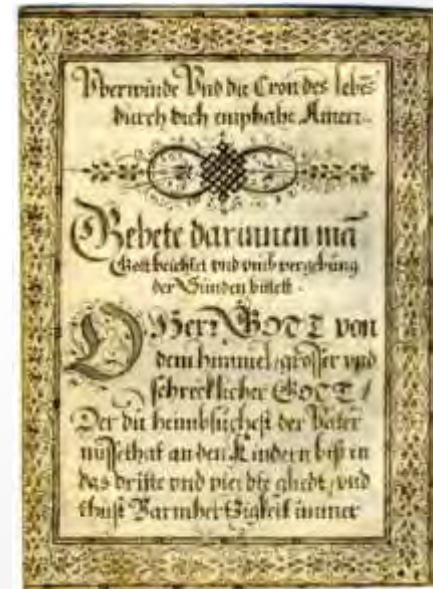 Vberwinde Vnd die Cron des lebēs
durch dich emphahe Amen.
Gebete darinnen mā
Gott beichtet vnd vmb vergebung
der Sünden bittett.
O Herr GOTT von
dem himmel, grosser vnd
schrecklicher GOTT /
Der du heimbsuchest der Vater
missethat an den Kindern biß in
das dritte vnd vierdte gliedt, vnd
thust Barmhertzigkeit immer